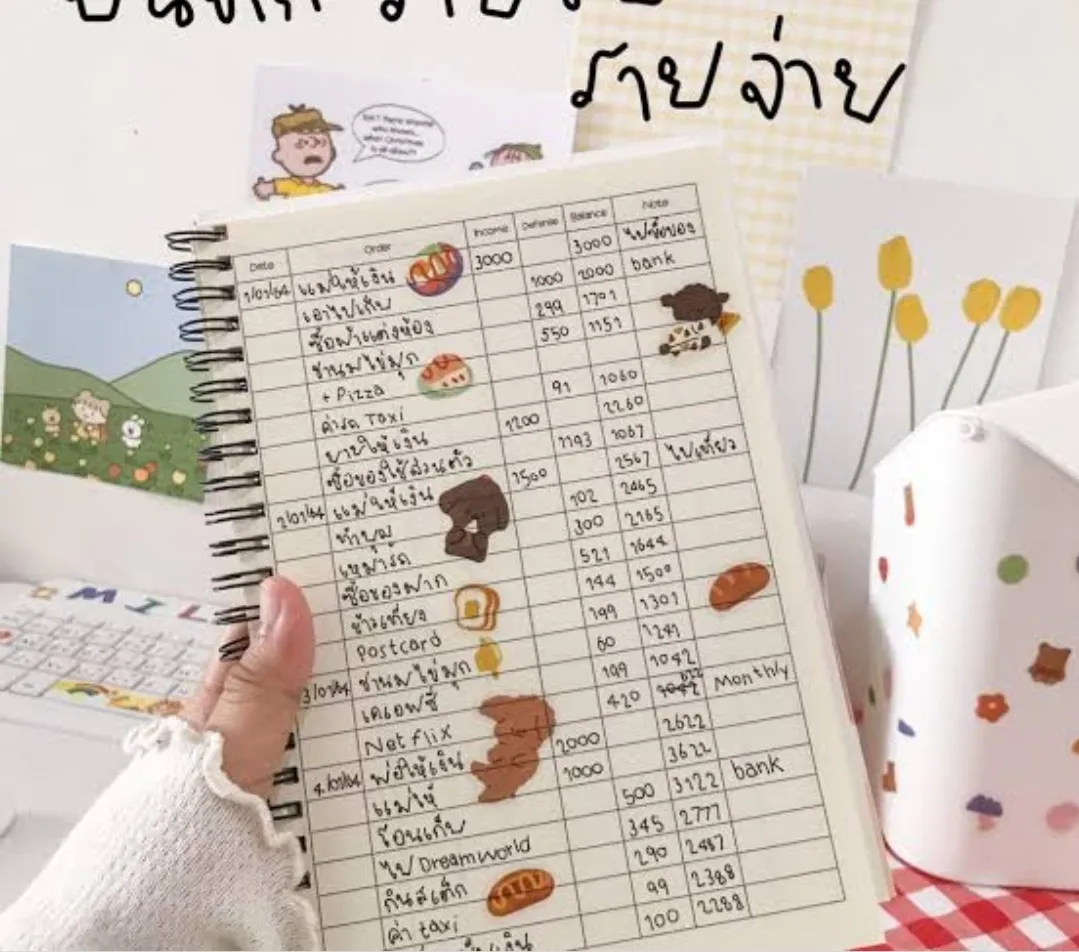 รายจ่าย
Date Order Income Defense Balance Note
1/01/64 แม่ให้เงิน 3000 3000 ไปซื้อของ
เอาไปเก็บ 1000 2000 bank
ซื้อผ้าแต่งห้อง 299 1701
ชานมไข่มุก 550 1151
+ Pizza
ค่ารถ Taxi 91 1060
ยายให้เงิน 1200 2260
ซื้อของใช้ส่วนตัว 1193 1067
2/01/64 แม่ให้เงิน 1500 2567 ไปเที่ยว
ทำบุญ 102 2465
เหมารถ 300 2165
ซื้อของฝาก 521 1644
ข้าวเที่ยง 144 1500
Postcard 199 1301
3/01/64 ชานมไข่มุก 60 1241
เคเอฟซี 199 1042
Netflix 420 622 Monthly
4/01/64 พ่อให้เงิน 2000 2622
แม่ให้ 1000 3622
โอนเก็บ 500 3122 bank
ไป Dreamworld 345 2777
กินสเต็ก 290 2487
ค่า taxi 99 2388
100 2288
MIL